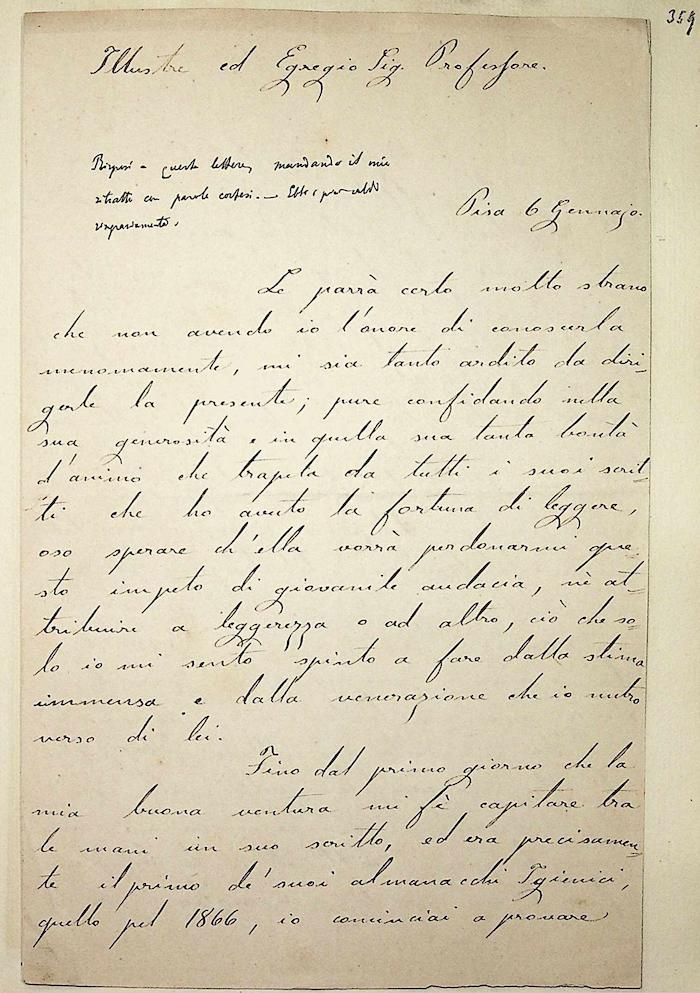 359
Illustre ed Egregio Sig. Professore.
Risposi a questa lettera, mandando il mio
ritratto con parole cortesi. —
Pisa 6 Gennajo.
Le parrà certo molto strano
che non avendo io l'onore di conoscerla
menomamente, mi sia tanto ardito da diri-
gerle la presente; pure confidando nella
sua generosità e in quella sua tanta bontà
d'animo che trapela da tutti i suoi scrit-
ti che ho avuto la fortuna di leggere,
oso sperare ch'ella vorrà perdonarmi que-
sto impeto di giovanile audacia, nè at-
tribuire a leggerezza o ad altro, ciò che so-
lo io mi sento spinto a fare dalla stima
immensa e dalla venerazione che io nutro
verso di lei.
Fino dal primo giorno che la
mia buona ventura mi fè capitare tra
le mani un suo scritto, ed era precisamen-
te il primo de' suoi almanacchi Igienici,
quello pel 1866, io cominciai a provare